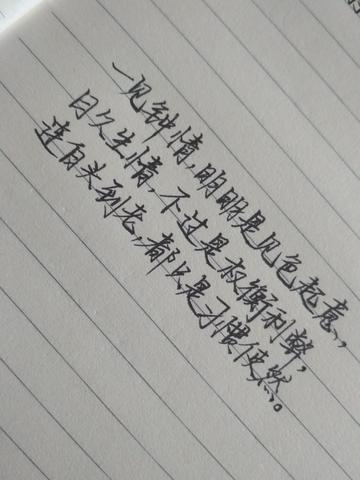 一见钟情,明明是见色起意,
日久生情,不过是权衡利弊,
连白头到老,都只是习惯使然。